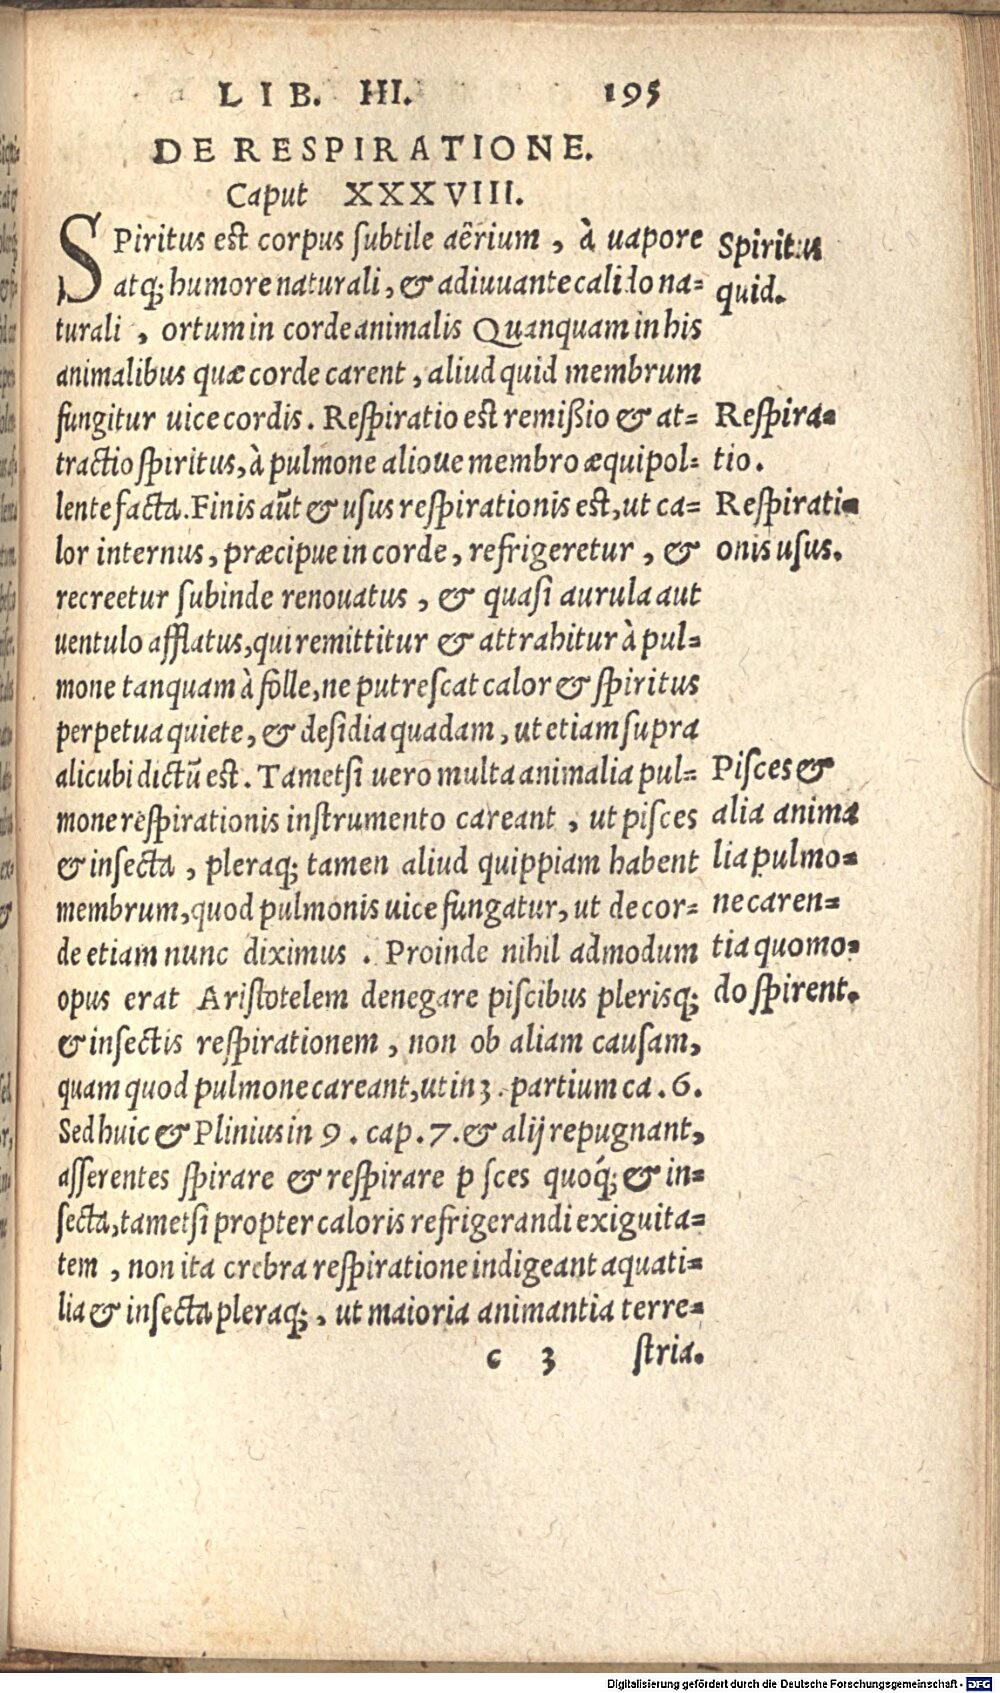 LIB. III. 195
DE RESPIRATIONE.
Caput XXXVIII.
SPiritus est corpus subtile aërium, à uapore
atq; humore naturali, & adiuuante calido na=
turali, ortum in corde animalis Quanquam in his
animalibus quæ corde carent, aliud quid membrum
fungitur uice cordis. Respiratio est remißio & at=
tractio spiritus, à pulmone alioue membro æquipol=
lente facta. Finis aũt & usus respirationis est, ut ca=
lor internus, præcipue in corde, refrigeretur, &
recreetur subinde renouatus, & quasi aurula aut
uentulo afflatus, qui remittitur & attrahitur à pul=
mone tanquam à folle, ne putrescat calor & spiritus
perpetua quiete, & desidia quadam, ut etiam supra
alicubi dictũ est. Tametsi uero multa animalia pul=
mone respirationis instrumento careant, ut pisces
& insecta, pleraq; tamen aliud quippiam habent
membrum, quod pulmonis uice fungatur, ut de cor=
de etiam nunc diximus. Proinde nihil admodum
opus erat Aristotelem denegare piscibus plerisq;
& insectis respirationem, non ob aliam causam,
quam quod pulmone careant, ut in 3. partium ca. 6.
Sed huic & Plinius in 9. cap. 7. & alij repugnant,
asserentes spirare & respirare p sces quoq́; & in=
secta, tametsi propter caloris refrigerandi exiguita=
tem, non ita crebra respiratione indigeant aquati=
lia & insecta pleraq;, ut maioria animantia terre=
c 3 stria.
Spiritus
quid.
Respira=
tio.
Respirati=
onis usus.
Pisces &
alia anima
lia pulmo=
ne caren=
tia quomo=
do spirent.
Digitalisierung gefördert durch die Deutsche Forschungsgemeinschaft - DFG